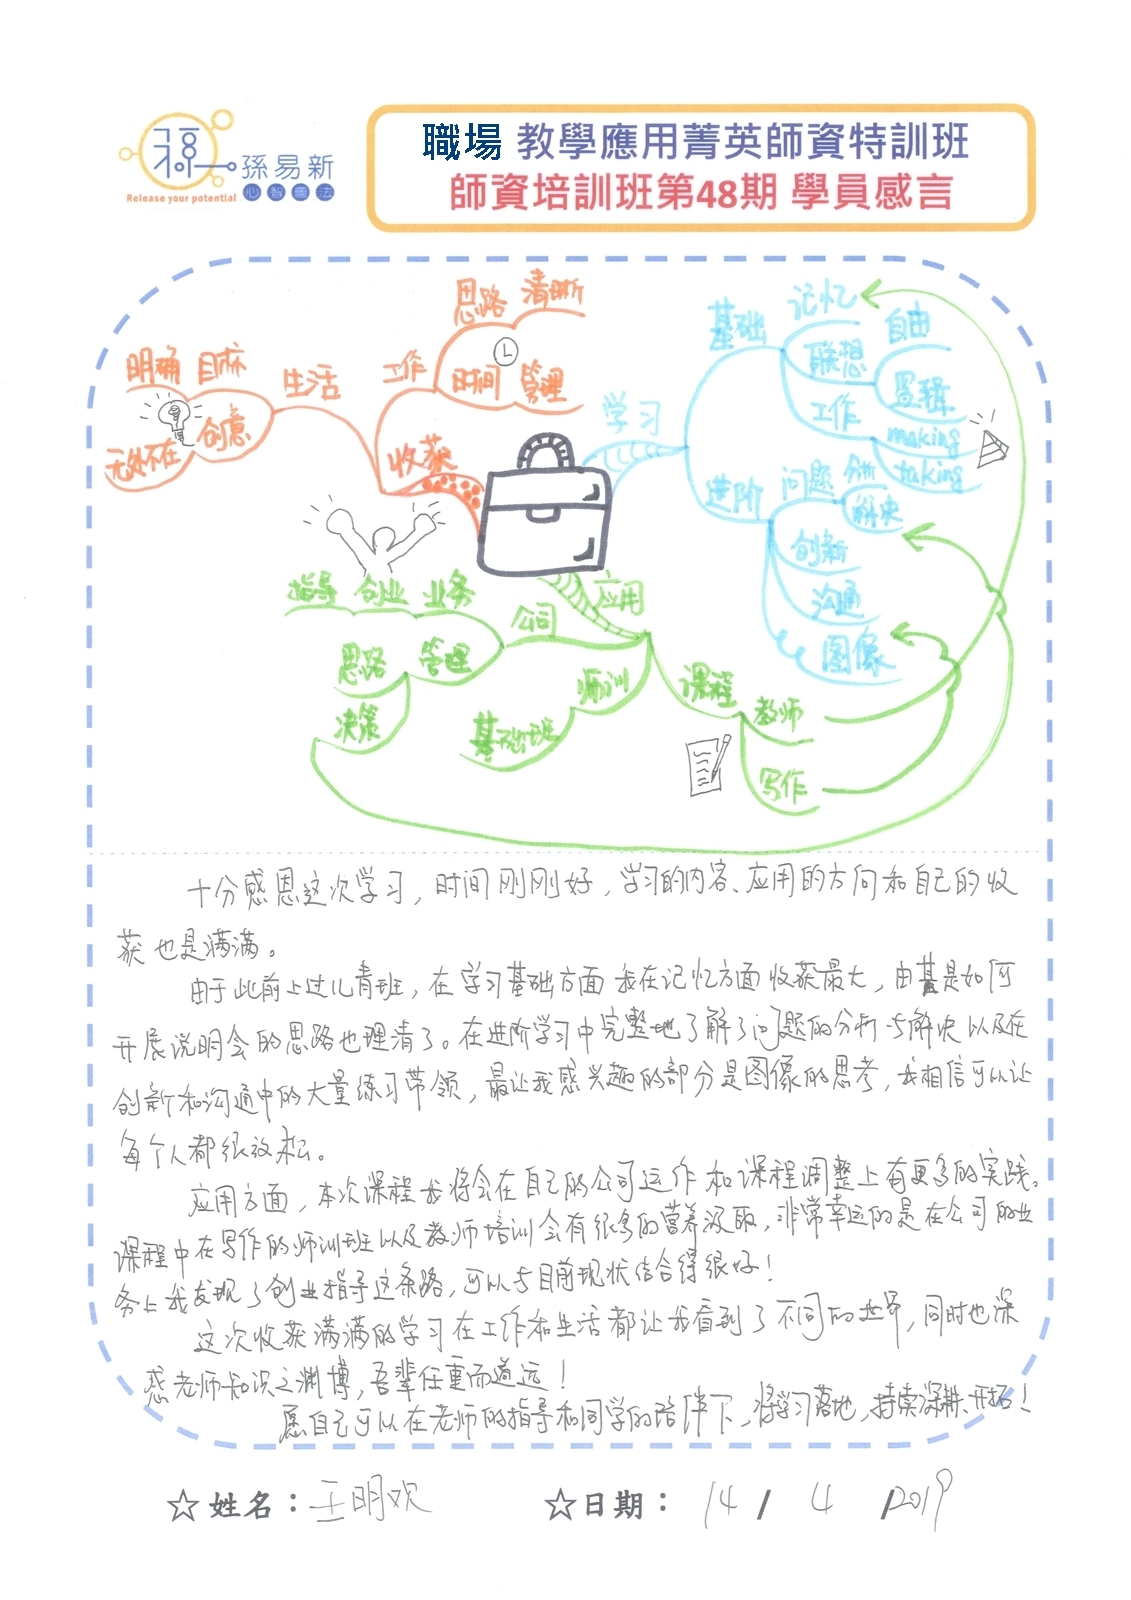 孫易新
心智圖法
Release your potential
職場 教學應用菁英師資特訓班
師資培訓班第48期 學員感言
思路 清晰
工作
时间 管理
收获
生活
明确 目标
创意
无处不在
学习
基础
记忆
联想
自由
逻辑
工作
making
taking
进阶
问题 分析
解决
创新
沟通
图像
应用
公司
业务 创业 指导
管理
思路
决策
师训
基础班
课程
教师
写作
十分感恩这次学习，时间刚刚好，学习的内容、应用的方向和自己的收
获也是满满。
由于此前上过儿青班，在学习基础方面我在记忆方面收获最大，由其是如何
开展说明会的思路也理清了。在进阶学习中完整地了解了问题的分析与解决以及在
创新和沟通中的大量练习带领，最让我感兴趣的部分是图像的思考，我相信可以让
每个人都很放松。
应用方面，本次课程我将会在自己的公司运作和课程调整上有更多的实践。
课程中在写作的师训班以及教师培训会有很多的营养汲取，非常幸运的是在公司的业
务上我发现了创业指导这条路，可以与目前现状结合得很好！
这次收获满满的学习在工作和生活都让我看到了不同的世界，同时也深
感老师知识之渊博，吾辈任重而道远！
愿自己可以在老师的指导和同学的陪伴下，将学习落地，持续深耕、开拓！
☆姓名：王明欢 ☆日期：14 / 4 /2019